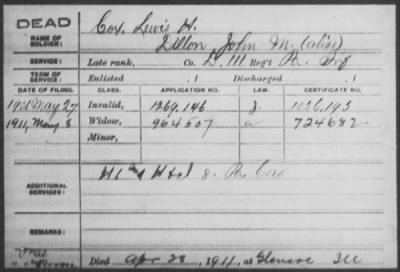 DEAD
NAME OF SOLDIER: Cox, Lewis H.
Dillon John M. (alias)
SERVICE: Late rank, Co. D, 111 Reg't Pa. Inf
TERM OF SERVICE: Enlisted , 1 Discharged , 1
DATE OF FILING. CLASS. APPLICATION NO. LAW. CERTIFICATE NO.
May 27 Invalid, 1269.146 1026.193
1911, May 8 Widow, 964507 a 724682
Minor,
ADDITIONAL SERVICES: H &
REMARKS:
Died Apr 28, 1911, at Glencoe Ill